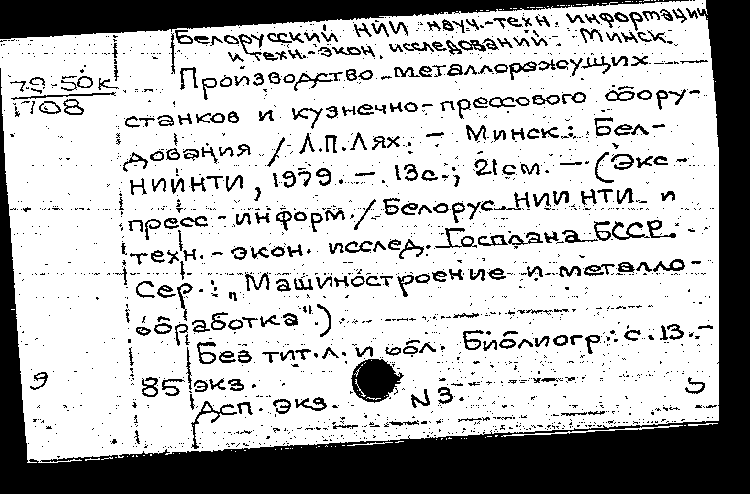 Белорусский НИИ науч.-техн. информации
и техн.-экон. исследований. Минск.
79-50к
П08
Производство металлорежущих
станков и кузнечно-прессового обору-
дования / Л.П.Лях. - Минск: Бел-
НИИНТИ, 1979. - 13с.; 21см. - (Экс-
пресс-информ. / Белорус. НИИ НТИ и
техн.-экон. исслед. Госплана БССР.
Сер.: "Машиностроение и металло-
обработка".)
Без тит.л. и обл. Библиогр.: с. 13. -
85 экз.
Дсп. экз. N 3.